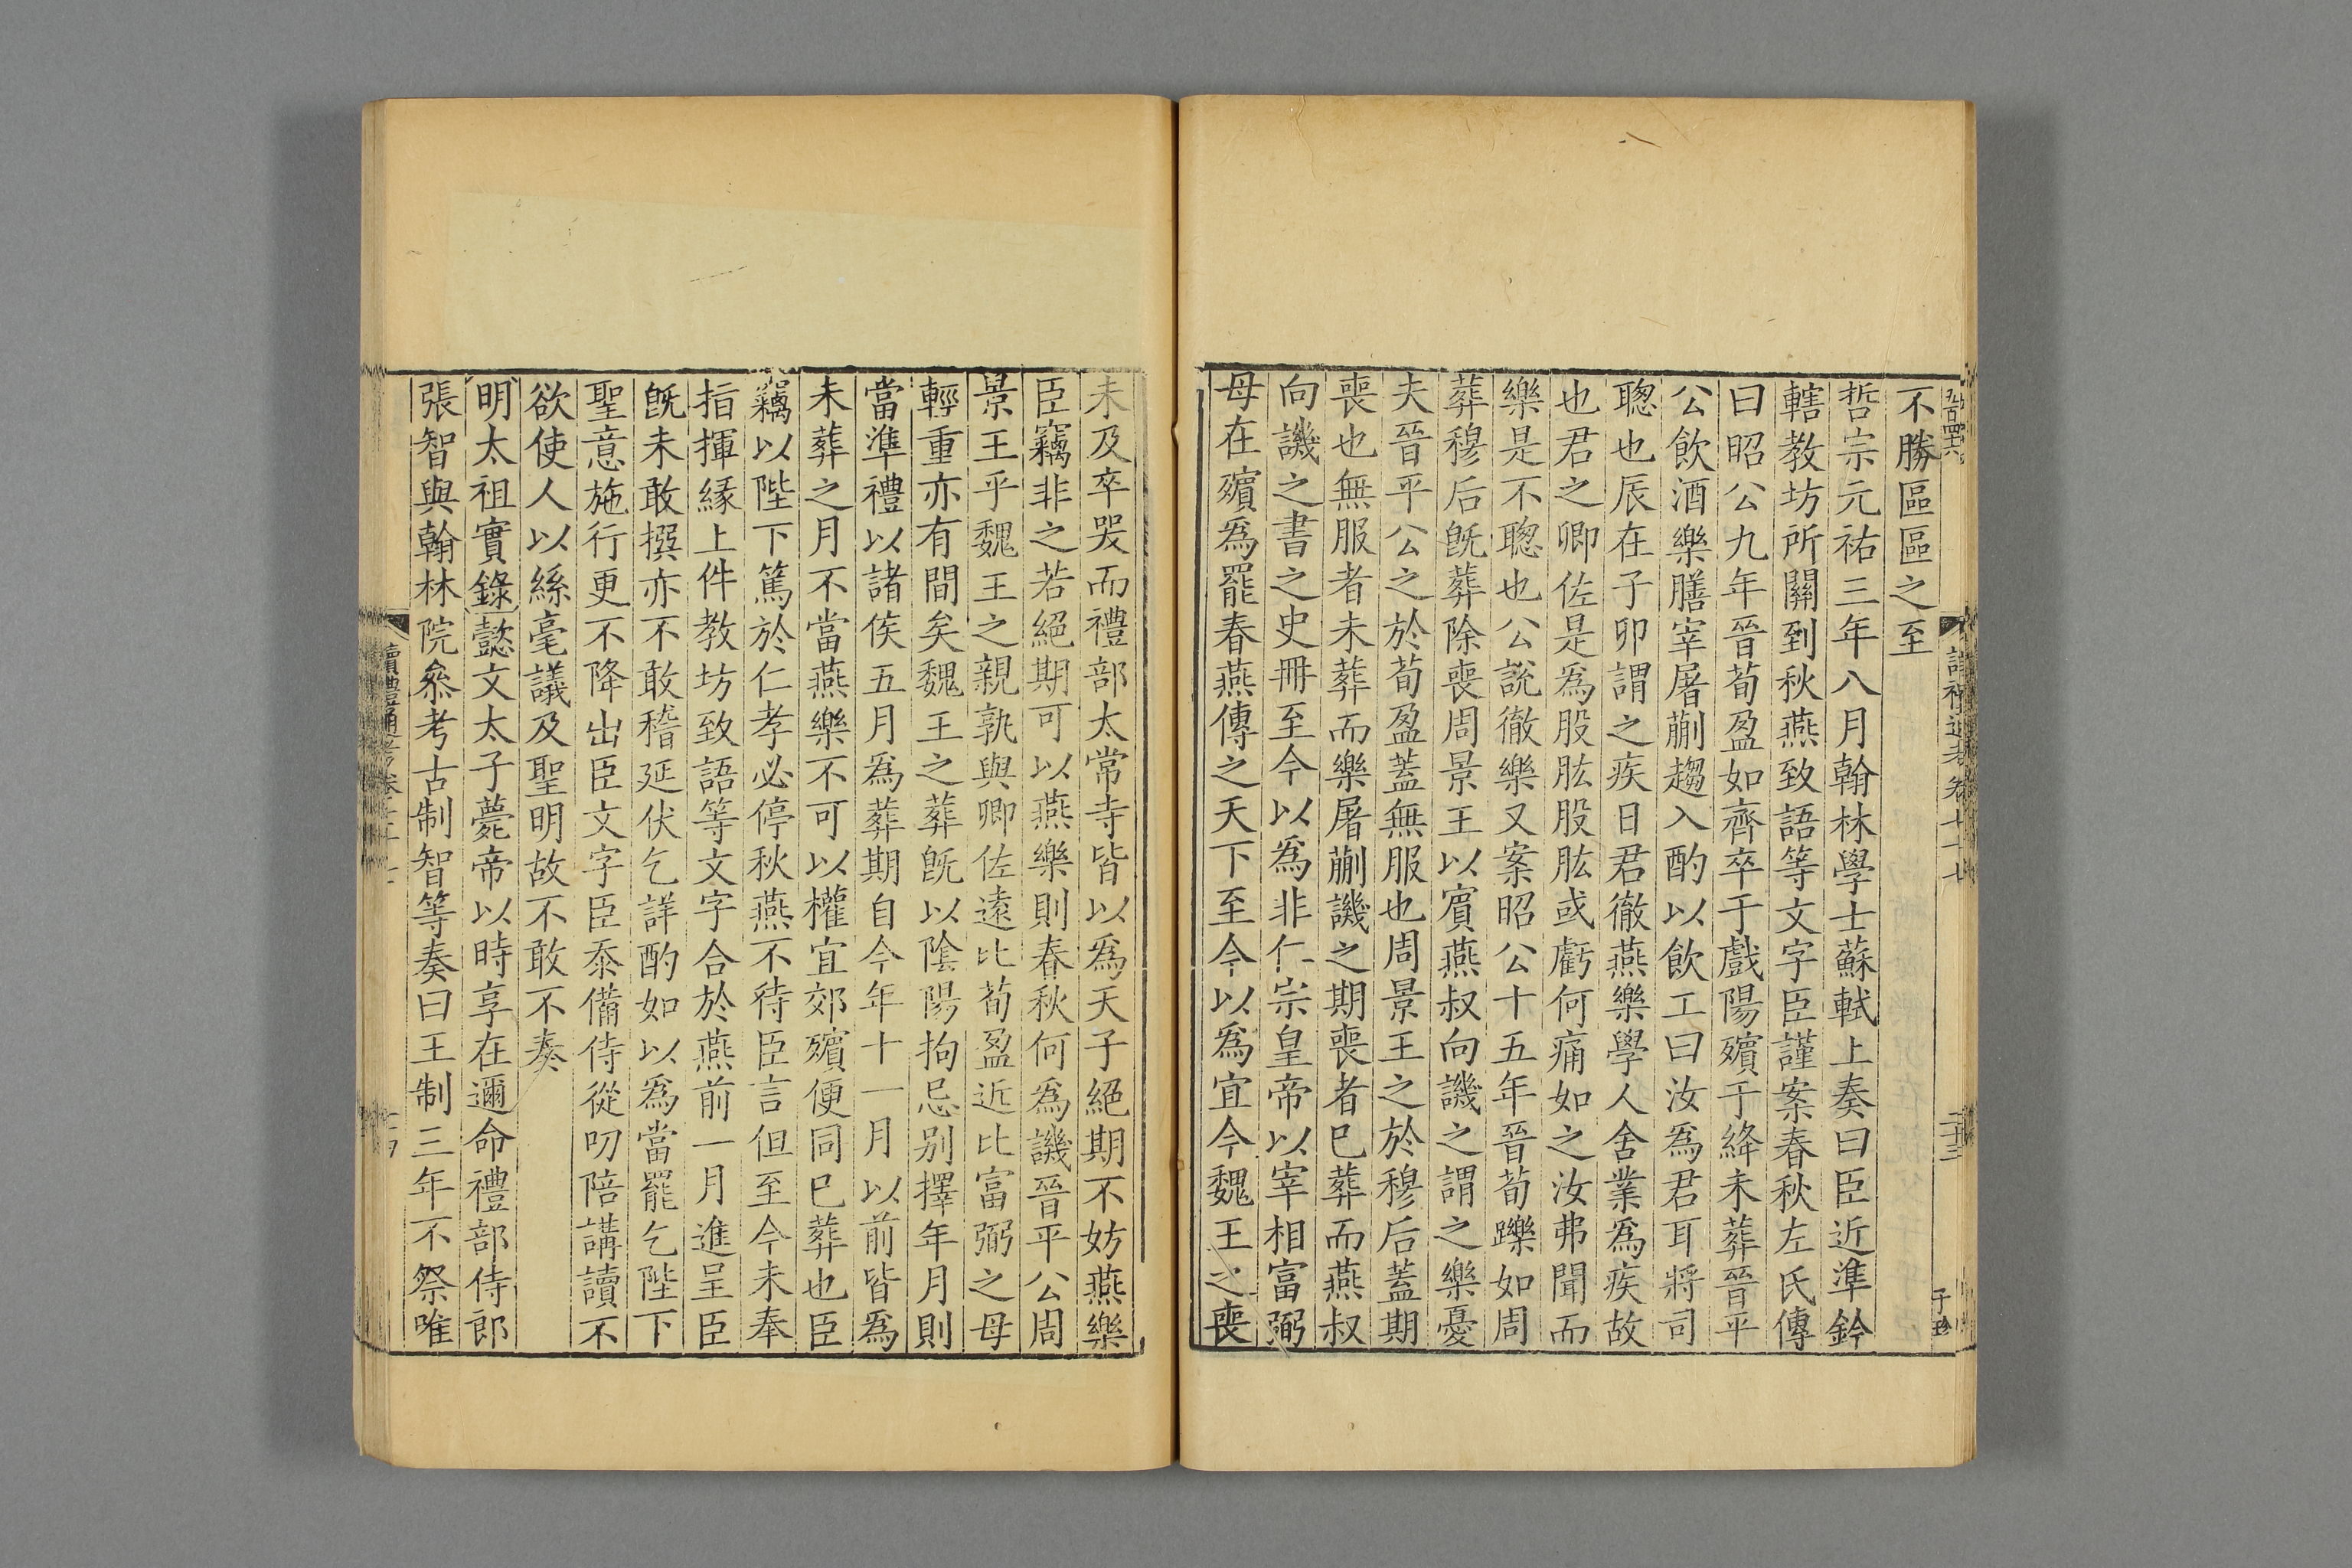 不勝區區之至
哲宗元祐三年八月翰林學士蘇軾上奏曰臣近準鈐
轄教坊所關到秋燕致語等文字臣謹案春秋左氏傳
曰昭公九年晉荀盈如齊卒于戲陽殯于絳未葬晉平
公飲酒樂膳宰屠蒯趨入酌以飲工曰汝爲君耳將司
聰也辰在子卯謂之疾日君徹燕樂學人舍業爲疾故
也君之卿佐是爲股肱股肱或虧何痛如之汝弗聞而
樂是不聰也公說徹樂又案昭公十五年晉荀躒如周
葬穆后旣葬除喪周景王以賔燕叔向譏之謂之樂憂
夫晉平公之於荀盈蓋無服也周景王之於穆后蓋期
喪也無服者未葬而樂屠蒯譏之期喪者已葬而燕叔
向譏之書之史冊至今以爲非仁宗皇帝以宰相富弼
母在殯爲罷春燕傳之天下至今以爲宜今魏王之喪
未及卒哭而禮部太常寺皆以爲天子絕期不妨燕樂
臣竊非之若絕期可以燕樂則春秋何爲譏晉平公周
景王乎魏王之親孰與卿佐遠比荀盈近比富弼之母
輕重亦有間矣魏王之葬旣以陰陽拘忌别擇年月則
當準禮以諸侯五月爲葬期自今年十一月以前皆爲
未葬之月不當燕樂不可以權宜郊殯便同已葬也臣
竊以陛下篤於仁孝必停秋燕不待臣言但至今未奉
指揮緣上件教坊致語等文字合於燕前一月進呈臣
旣未敢撰亦不敢稽延伏乞詳酌如以爲當罷乞陛下
聖意施行更不降出臣文字臣忝備侍從叨陪講讀不
欲使人以絲毫議及聖明故不敢不奏
明太祖實錄懿文太子薨帝以時享在邇命禮部侍郎
張智與翰林院叅考古制智等奏曰王制三年不祭唯
讀禮通考卷